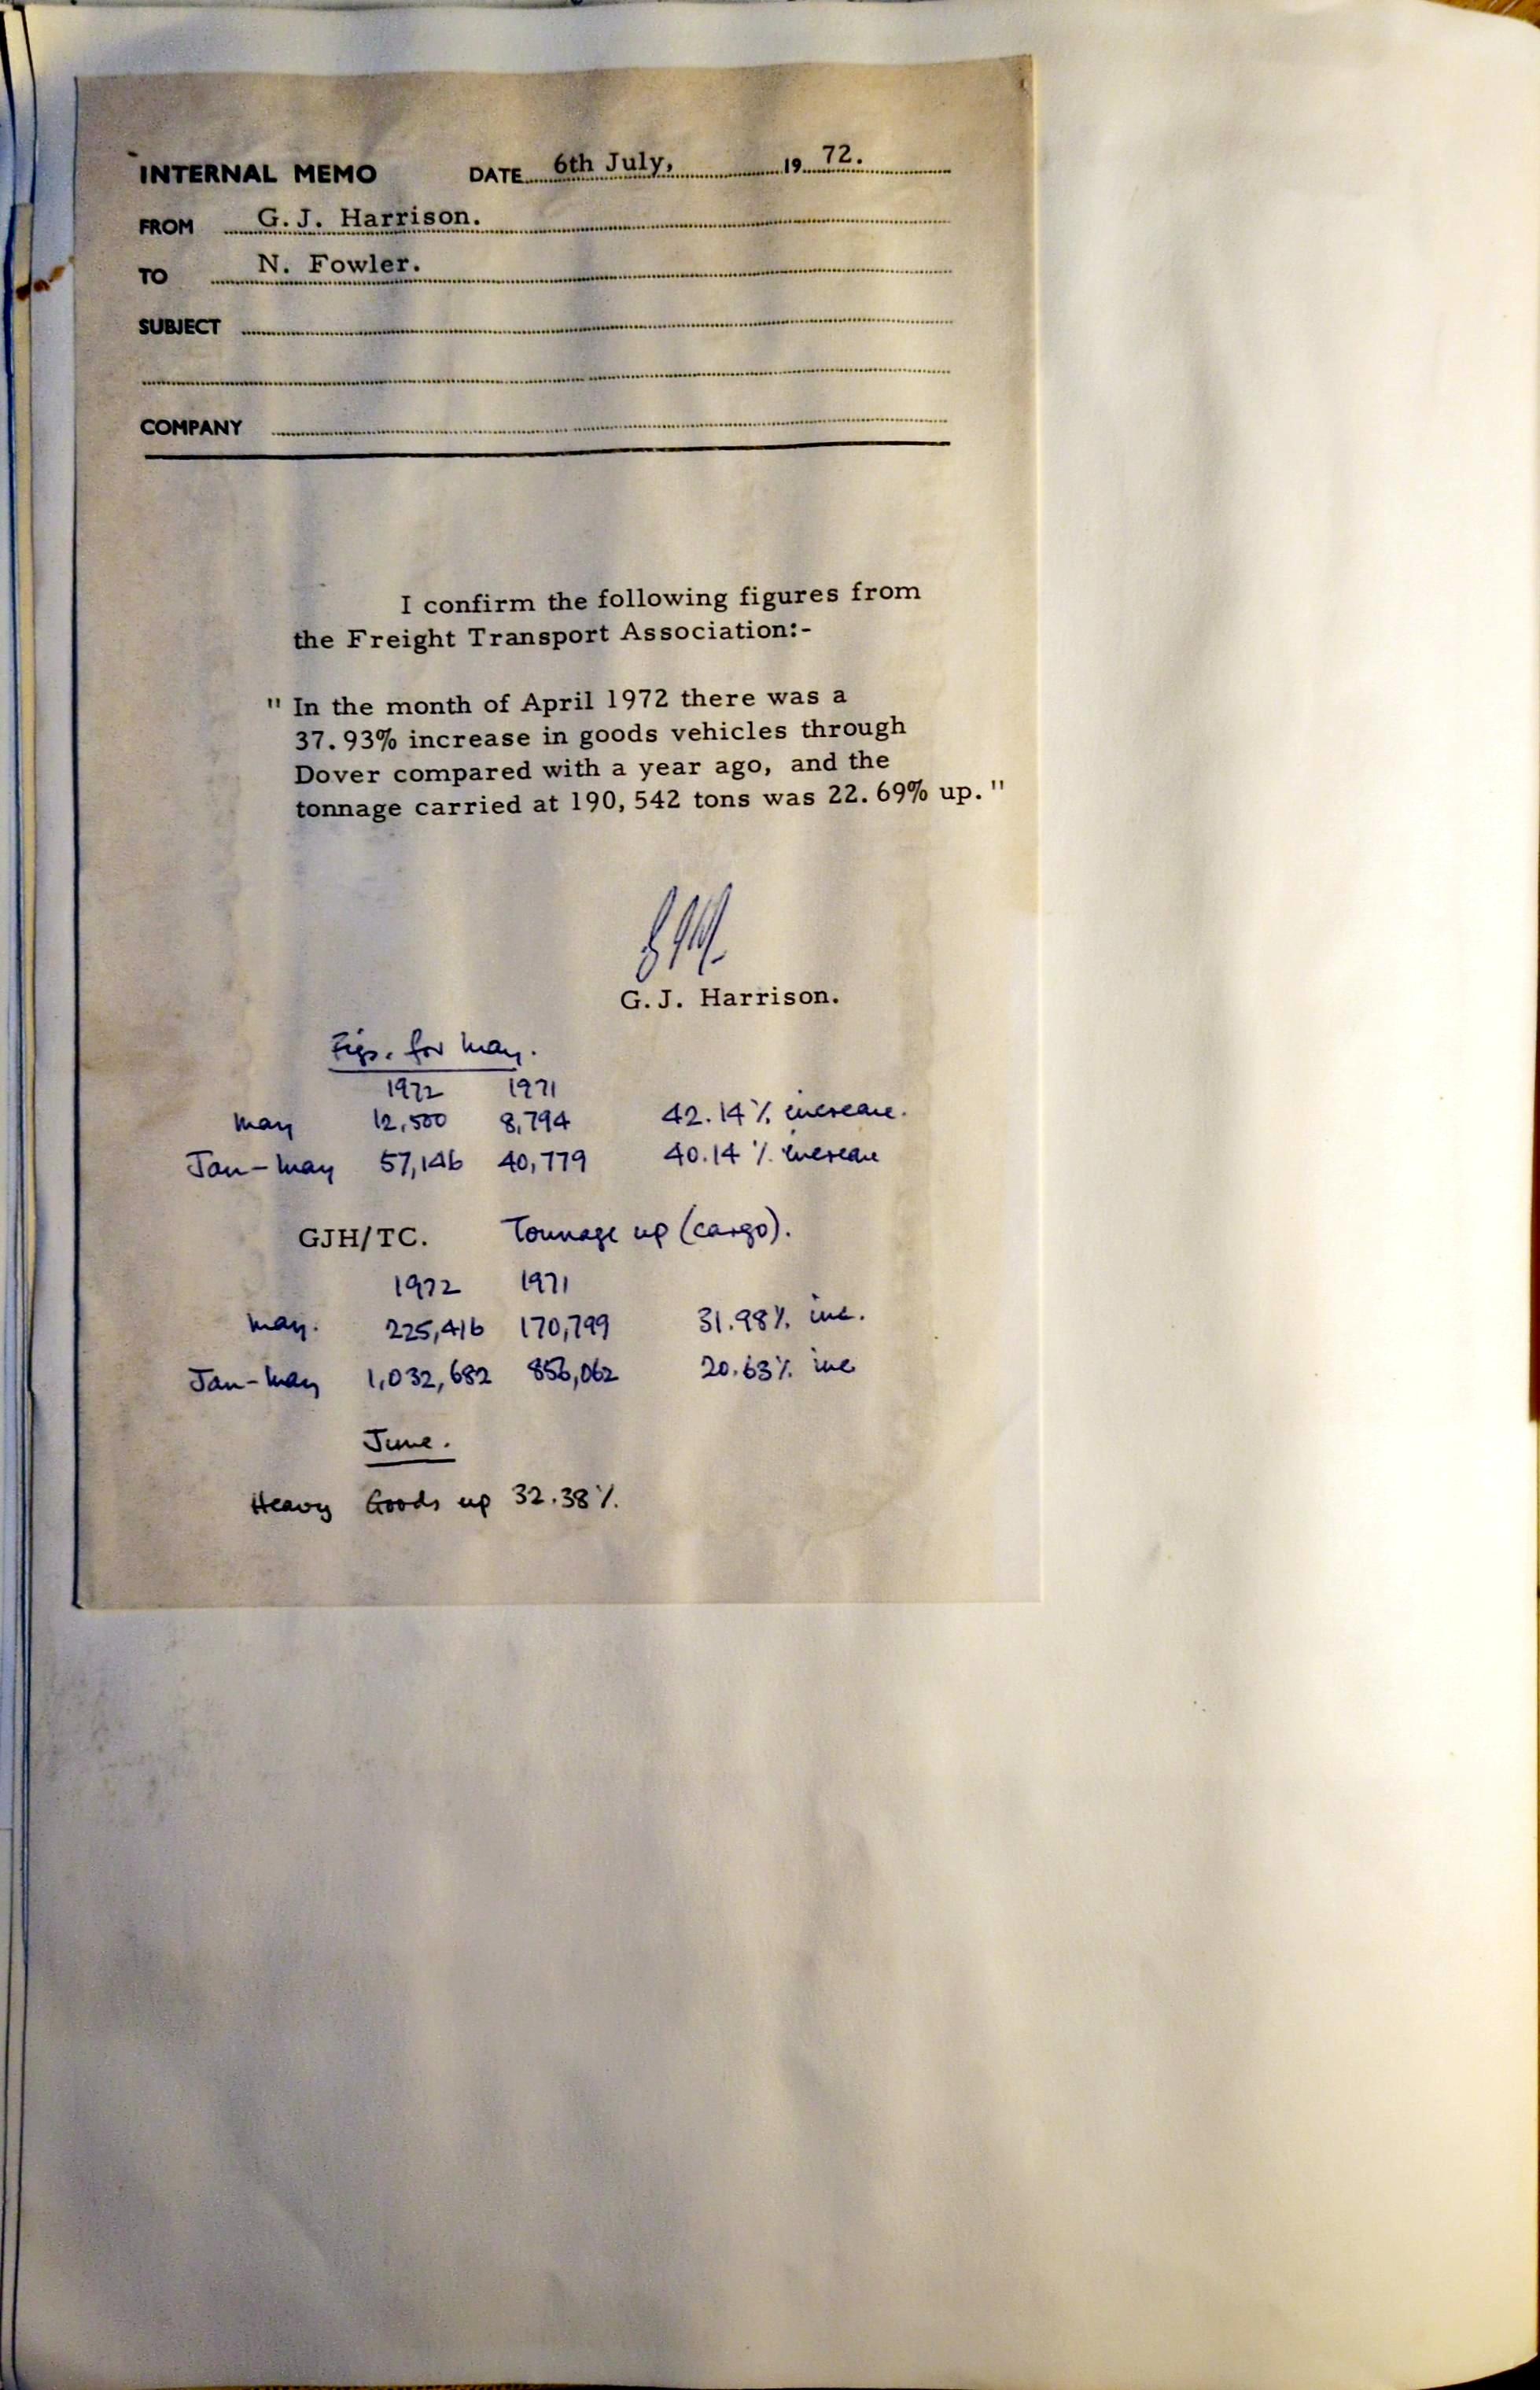 INTERNAL MEMO DATE 6th July, 19 72.
FROM G. J. Harrison.
TO N. Fowler.
SUBJECT
COMPANY
I confirm the following figures from
the Freight Transport Association:-
" In the month of April 1972 there was a
37.93% increase in goods vehicles through
Dover compared with a year ago, and the
tonnage carried at 190,542 tons was 22.69% up. "
G. J. Harrison.
Figs. for May.
1972 1971
May 12,500 8,794 42.14% increase.
Jan-May 57,146 40,779 40.14% increase
GJH/TC. Tonnage up (cargo).
1972 1971
May. 225,416 170,799 31.98% inc.
Jan-May 1,032,682 856,062 20.63% inc
June.
Heavy Goods up 32.38%.